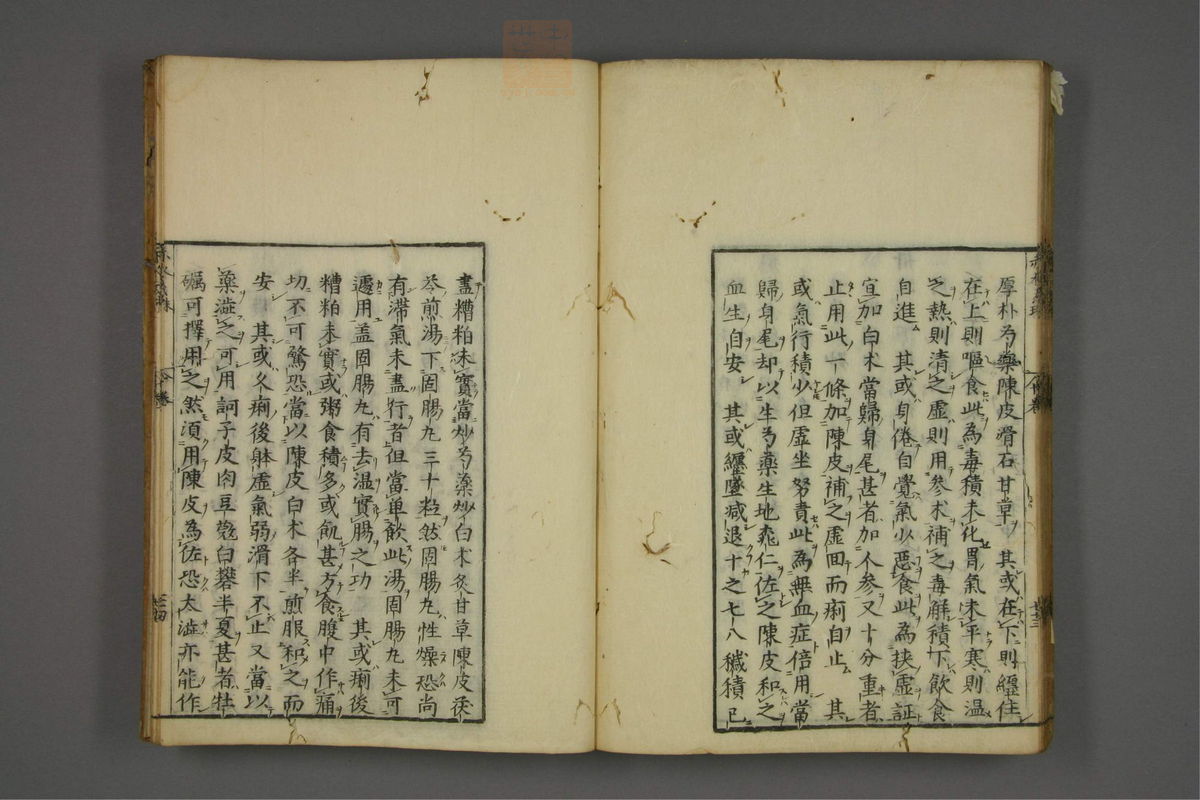 厚朴芍藥陳皮滑石甘草　其或在下則纏住
在上則嘔食此為毒積未化胃氣未平寒則温
之熱則清之虛則用參术補之毒解積下飲食
自進　其或身倦自覺氣少惡食此為挾虛証
宜加白术當歸身尾甚者加人参又十分重者
止用此一條加陳皮補之虛回而痢自止　其
或氣行積少但虛坐努責此為無血症倍用當
歸身尾却以生芍藥生地桃仁佐之陳皮和之
血生自安　其或纏墜减退十之七八穢積已
盡糟粕未實當炒芍藥炒白术炙甘草陳皮茯
苓煎湯下固腸丸三十粒然固腸丸性燥恐尚
有滯氣未盡行者但當单飲此湯固腸丸未可
遽用盖固腸丸有去湿實腸之功　其或痢後
糟粕未實或粥食積多或飢甚方食腹中作痛
切不可驚恐當以陳皮白术各半煎服和之而
安　其或久痢後躰虛氣弱滑下不止又當以
藥澁之可用訶子皮肉豆蔻白礬半夏甚者牡
礪可擇用之然須用陳皮為佐恐太澁亦能作